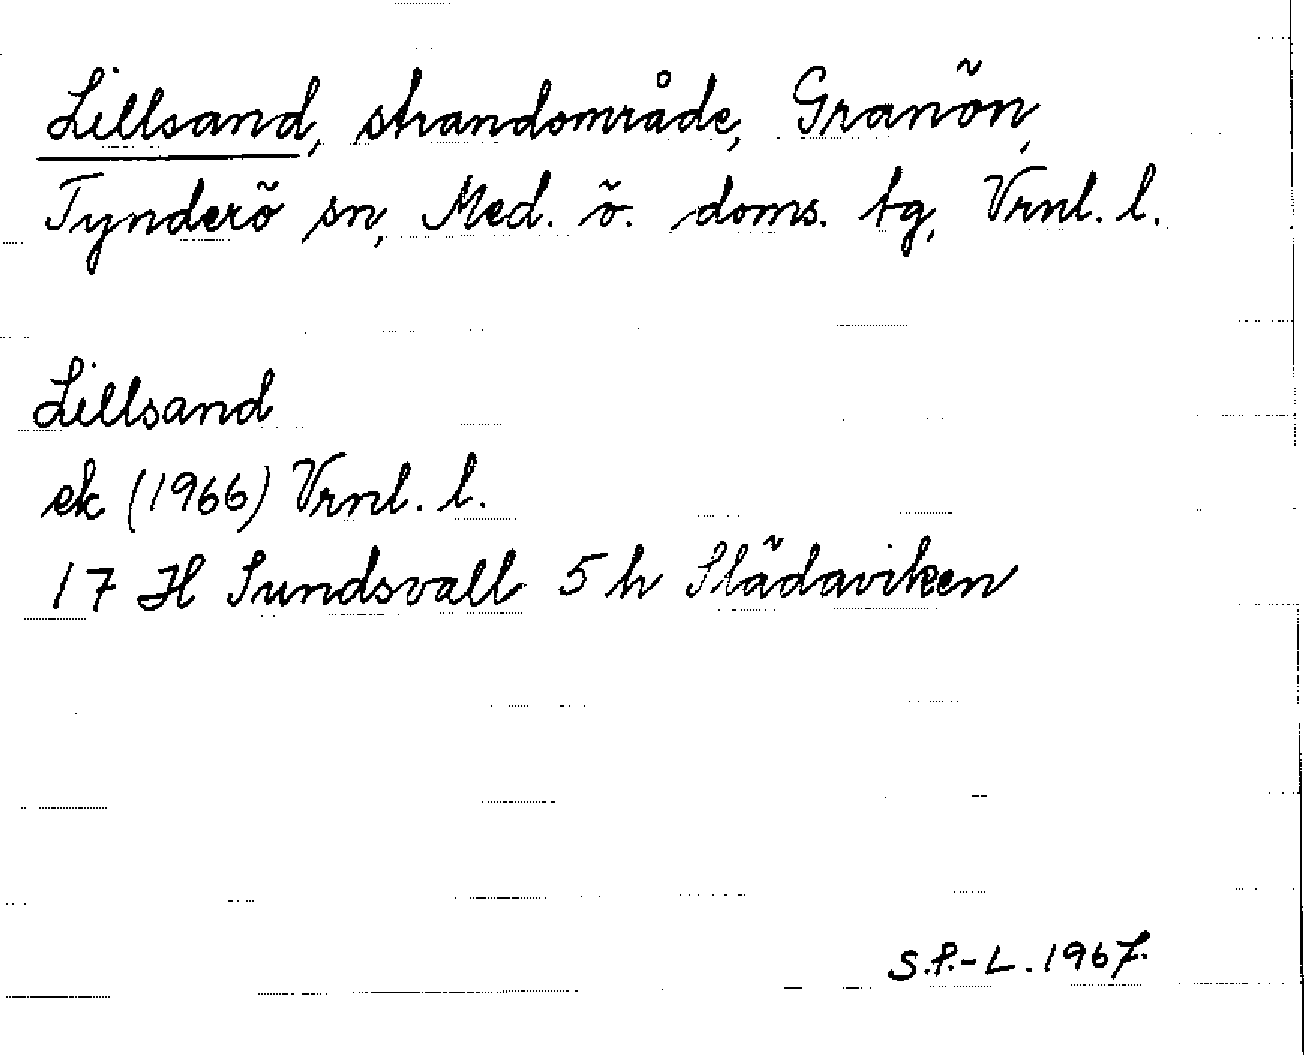 Lillsand, strandområde, Granön,
Tynderö sn, Med. ö. doms. tg, Vrnl. l.
Lillsand
ek (1966) Vrnl. l.
17 H Sundsvall 5 h Slädaviken
S.P.-L. 1967.